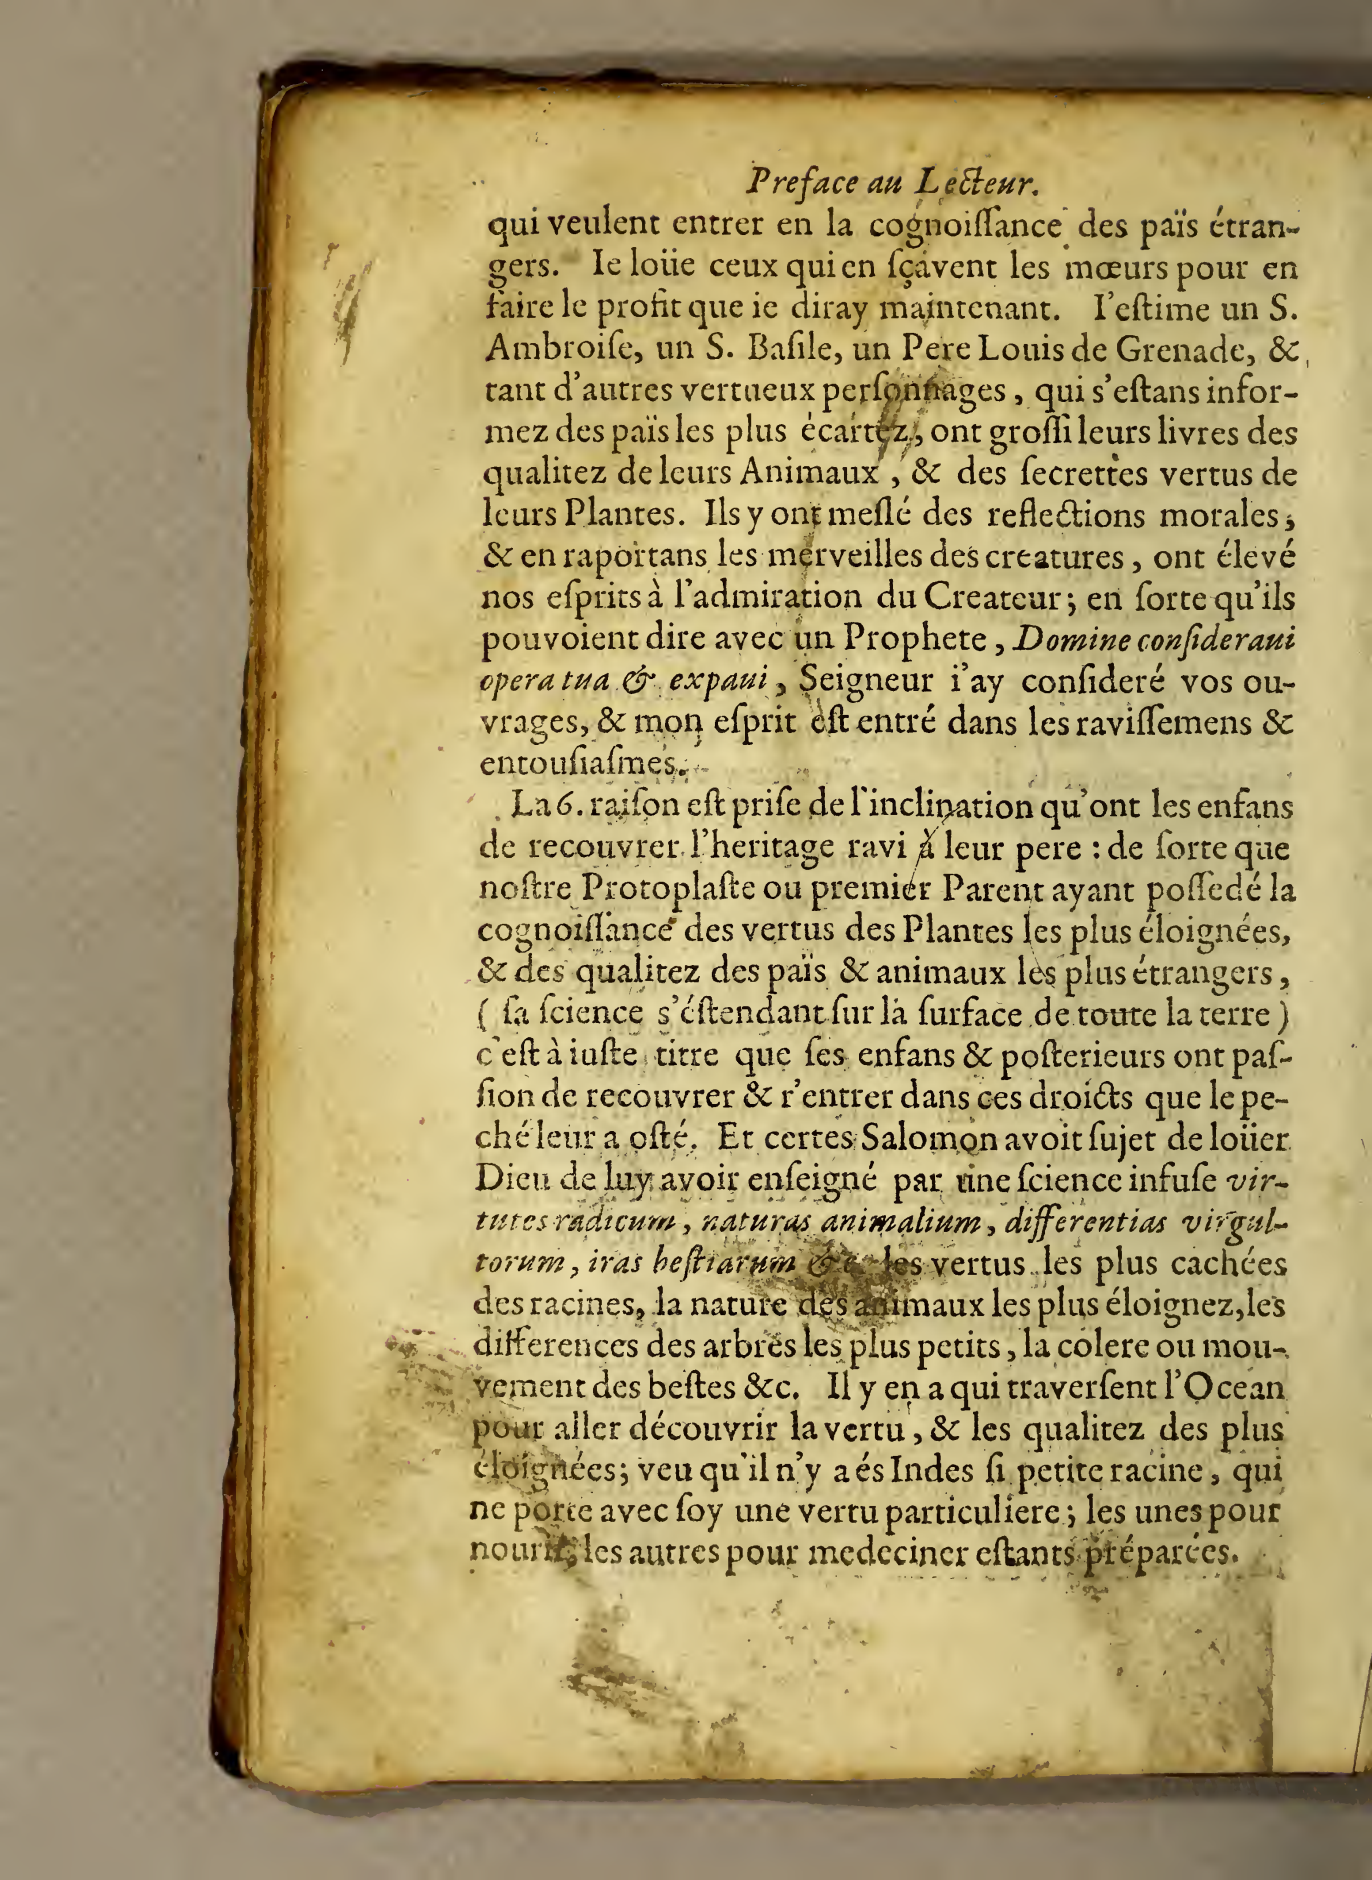 Preface au Lecteur.
qui veulent entrer en la cognoiſſance des païs étran-
gers. Ie loüe ceux qui en ſçavent les mœurs pour en
faire le profit que ie diray maintenant. I'eſtime un S.
Ambroiſe, un S. Baſile, un Pere Louis de Grenade, &
tant d'autres vertueux perſonnages, qui s'eſtans infor-
mez des païs les plus écartez, ont groſſi leurs livres des
qualitez de leurs Animaux, & des ſecrettes vertus de
leurs Plantes. Ils y ont meſlé des reflections morales,
& en raportans les merveilles des creatures, ont élevé
nos eſprits à l'admiration du Createur; en ſorte qu'ils
pouvoient dire avec un Prophete, Domine conſideraui
opera tua & expaui, Seigneur i'ay conſideré vos ou-
vrages, & mon eſprit eſt entré dans les raviſſemens &
entouſiaſmes.
La 6. raiſon eſt priſe de l'inclination qu'ont les enfans
de recouvrer l'heritage ravi à leur pere : de ſorte que
noſtre Protoplaſte ou premier Parent ayant poſſedé la
cognoiſſance des vertus des Plantes les plus éloignées,
& des qualitez des païs & animaux les plus étrangers,
( ſa ſcience s'éſtendant ſur la ſurface de toute la terre )
c'eſt à iuſte titre que ſes enfans & poſterieurs ont paſ-
ſion de recouvrer & r'entrer dans ces droicts que le pe-
ché leur a oſté. Et certes Salomon avoit ſujet de loüer
Dieu de luy avoir enſeigné par une ſcience infuſe vir-
tutes radicum, naturas animalium, differentias virgul-
torum, iras beſtiarum &c. les vertus les plus cachées
des racines, la nature des animaux les plus éloignez, les
differences des arbres les plus petits, la colere ou mou-
vement des beſtes &c. Il y en a qui traverſent l'Ocean
pour aller découvrir la vertu, & les qualitez des plus
éloignées; veu qu'il n'y a és Indes ſi petite racine, qui
ne porte avec ſoy une vertu particuliere; les unes pour
nourir, les autres pour medeciner eſtants préparées.